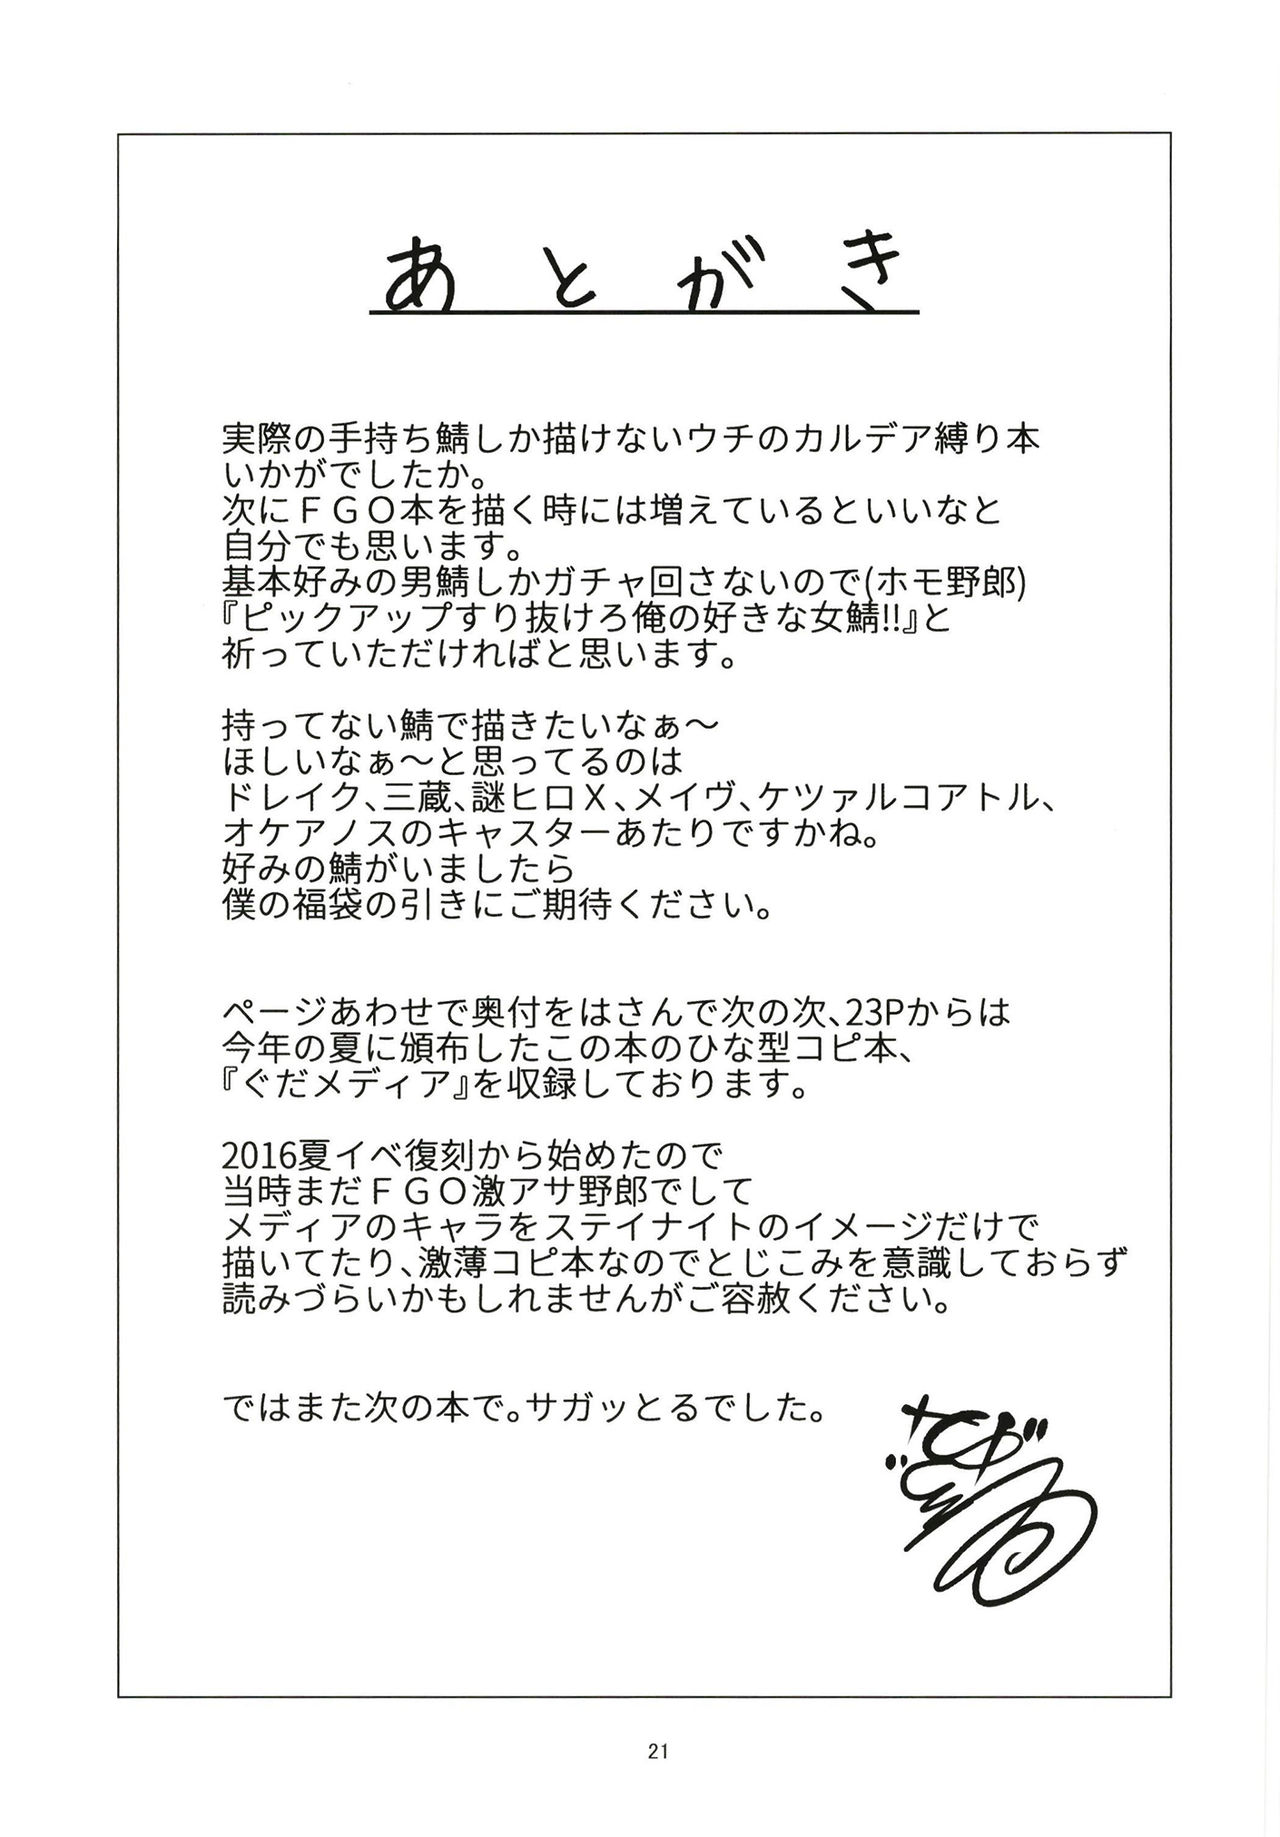 あとがき
実際の手持ち鯖しか描けないウチのカルデア縛り本
いかがでしたか。
次にＦＧＯ本を描く時には増えているといいなと
自分でも思います。
基本好みの男鯖しかガチャ回さないので(ホモ野郎)
『ピックアップすり抜けろ俺の好きな女鯖!!』と
祈っていただければと思います。
持ってない鯖で描きたいなぁ～
ほしいなぁ～と思ってるのは
ドレイク、三蔵、謎ヒロＸ、メイヴ、ケツァルコアトル、
オケアノスのキャスターあたりですかね。
好みの鯖がいましたら
僕の福袋の引きにご期待ください。
ページあわせで奥付をはさんで次の次、23Pからは
今年の夏に頒布したこの本のひな型コピ本、
『ぐだメディア』を収録しております。
2016夏イベ復刻から始めたので
当時まだＦＧＯ激アサ野郎でして
メディアのキャラをステイナイトのイメージだけで
描いてたり、激薄コピ本なのでとじこみを意識しておらず
読みづらいかもしれませんがご容赦ください。
ではまた次の本で。サガッとるでした。
21